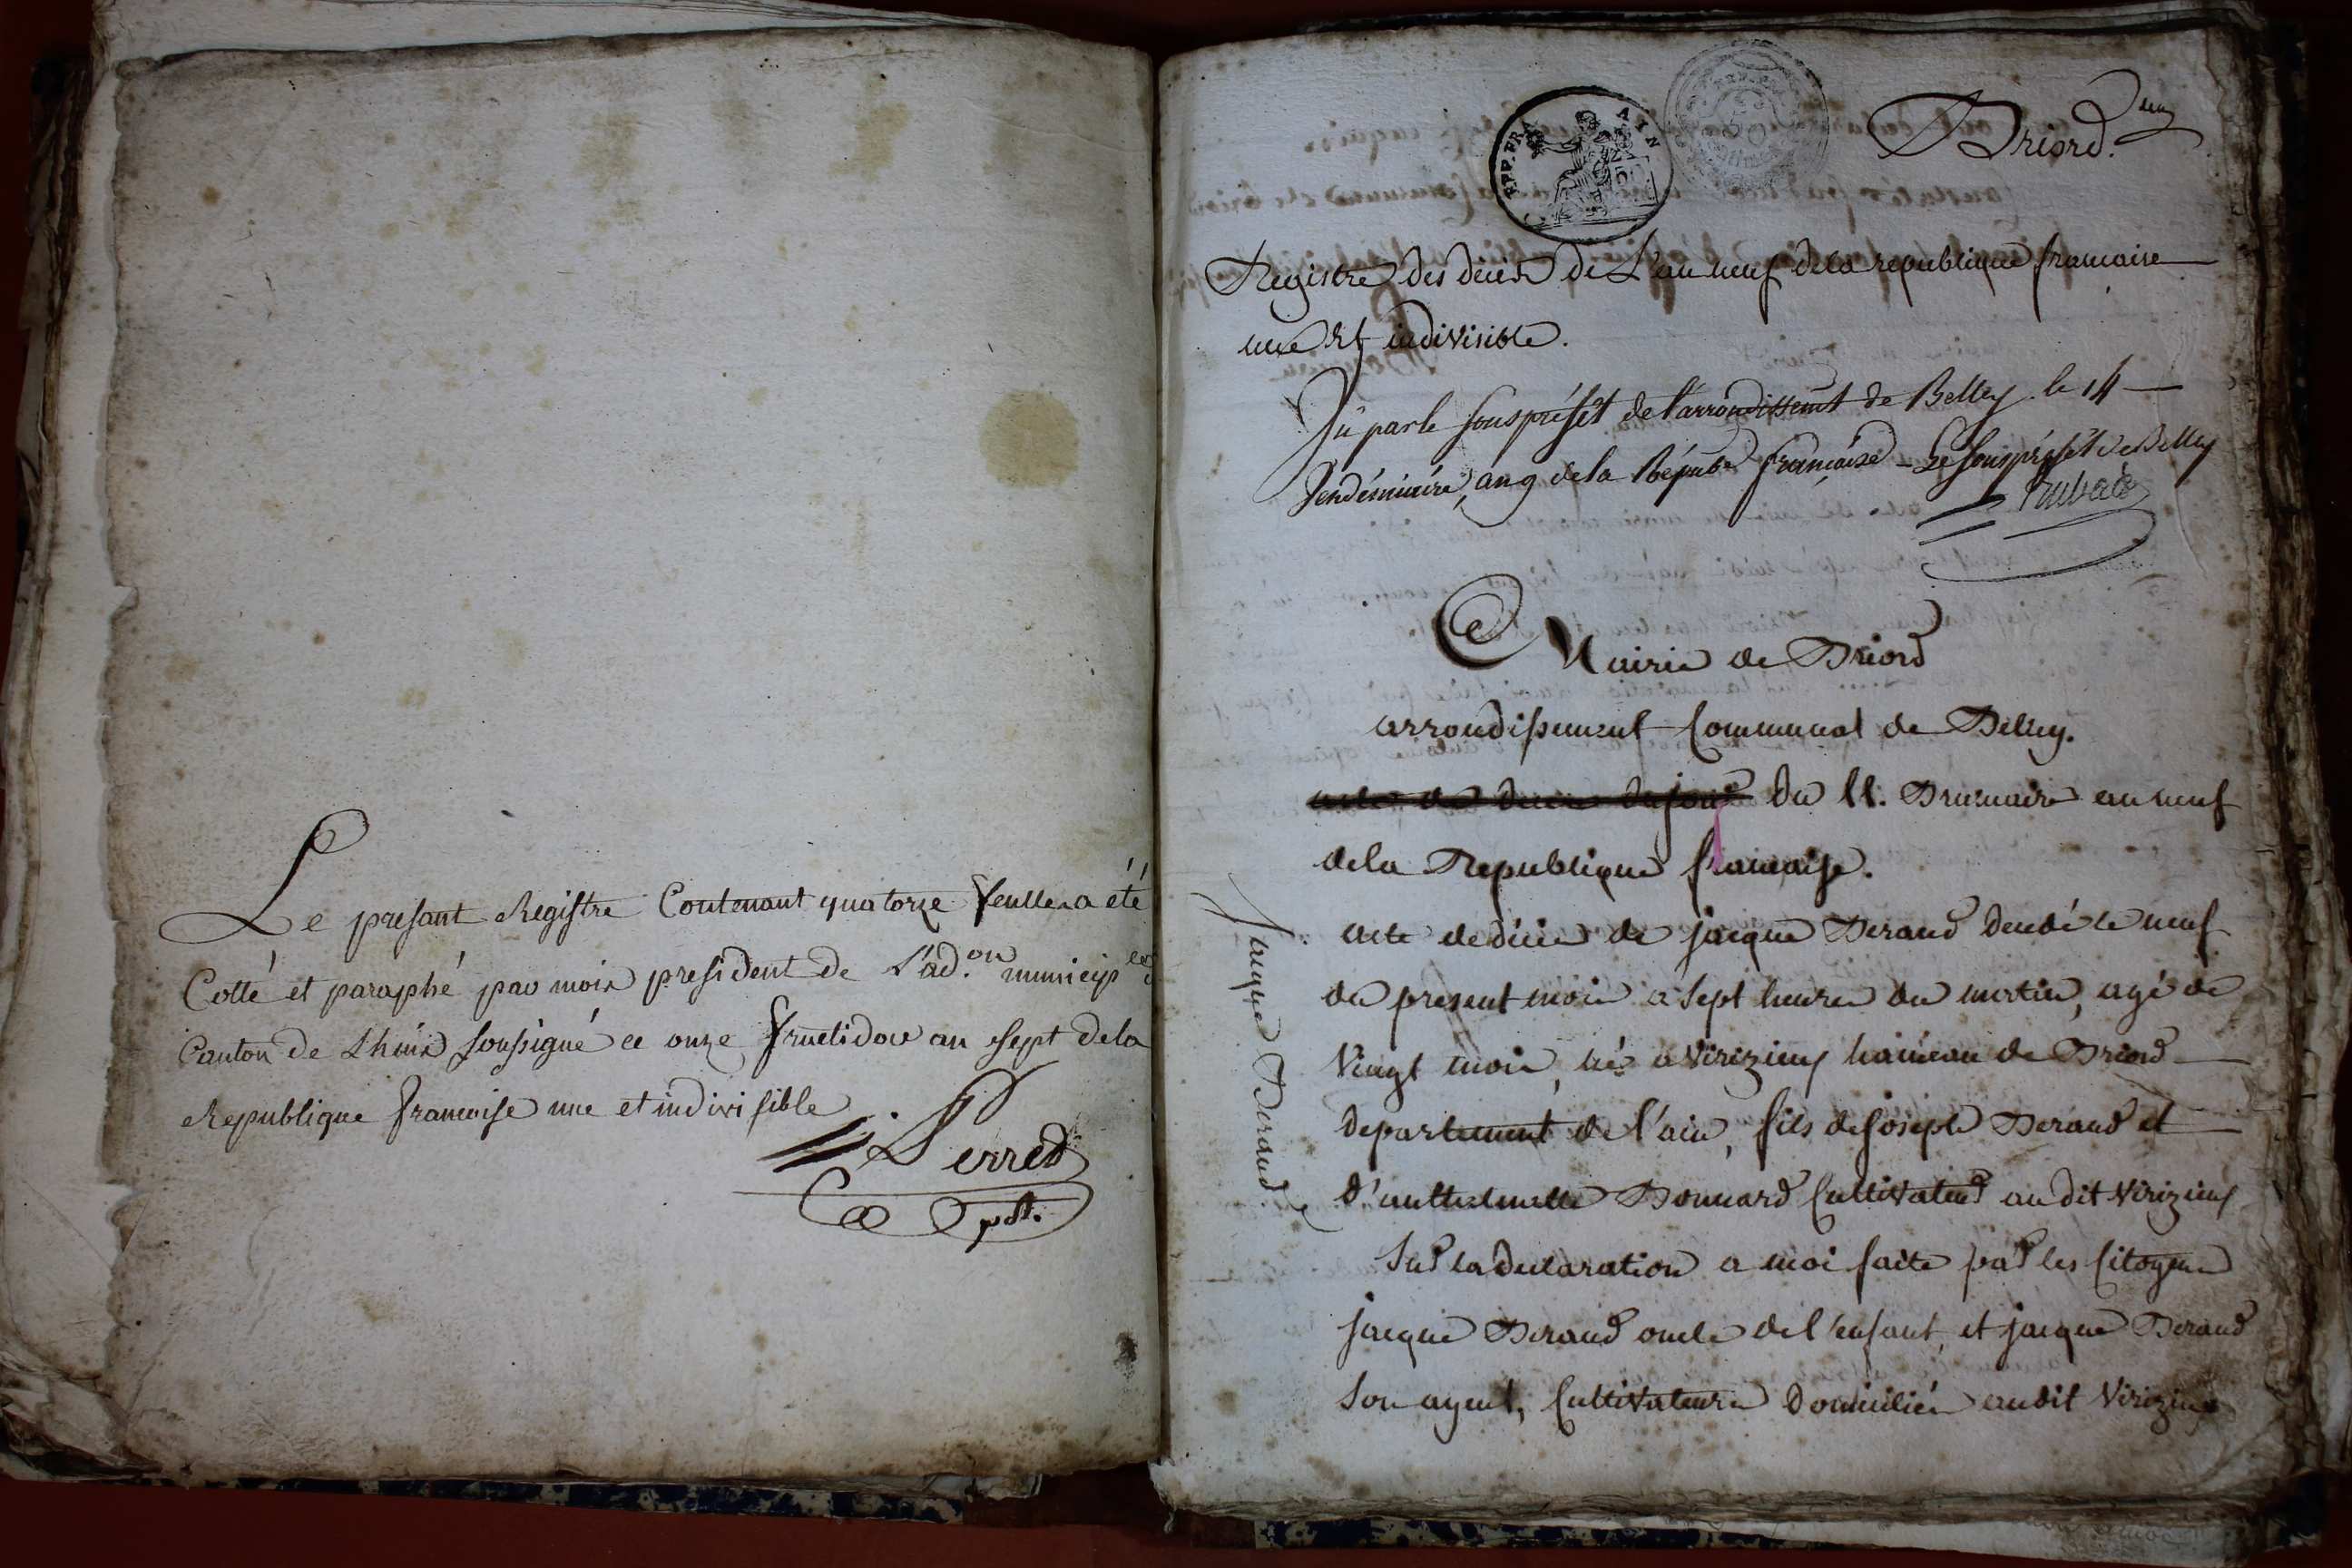 Le presant Registre Contenant quatorze feulles a été
Cotté et paraphé par mois president de L'ad.on municip.le
Canton de Lhuis soussigné ce onze fructidor an sept de la
Republique francoise une et indivisible
Perret
pdt.
REP. FRA AIN
Briord.
Registre des décès de L'an neuf de la republique francaise
une et indivisible.
Vû par le sous préfêt de l'arrondissemt de Belley le 14
Vendémiaire, an 9 de la Répube française Le sous préfêt de Belley
Mairie de Briord
arrondissement Communal de Belley.
acte de deces du jour du 11. Brumaire an neuf
de la Republique francaise.
acte de décès de jacque Derand decedé le neuf
du present mois a sept heures du matin, agé de
Vingt mois, né a Virizieux haimeau de Briord
departement de l'ain, fils de joseph Derand et
d'anthelmette Bonnard Cultivateur au dit Virizieux
Sur la declaration a moi faite par les Citoyens
jacque Derand oncle de l'enfant, et jacque Derand
Son ayeul, Cultivateurs Domiciliés au dit Virizieux
Jacque Derand